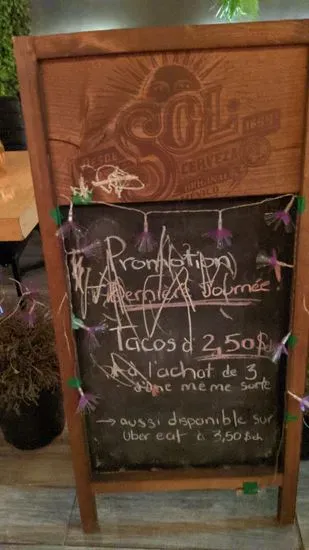 SOL
CERVEZA
ORIGINAL
MEXICO
1899
Promotion
Dernière Journée!
Tacos à 2,50$
* à l'achat de 3
d'une même sorte
→ aussi disponible sur
Uber eat à 3,50$ch